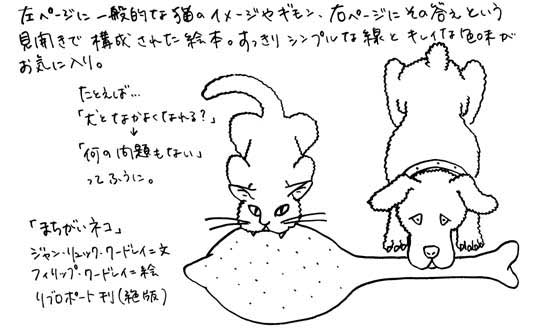 左ページに一般的な猫のイメージやギモン、右ページにその答えという
見開きで構成された絵本。すっきりシンプルな線とキレイな色味が
お気に入り。
たとえば…
「犬となかよくなれる？」
↓
「何の問題もない」
ってふうに。
「まちがいネコ」
ジャン・リュック・クードレイ=文
フィリップ・クードレイ=絵
リブロポート刊(絶版)